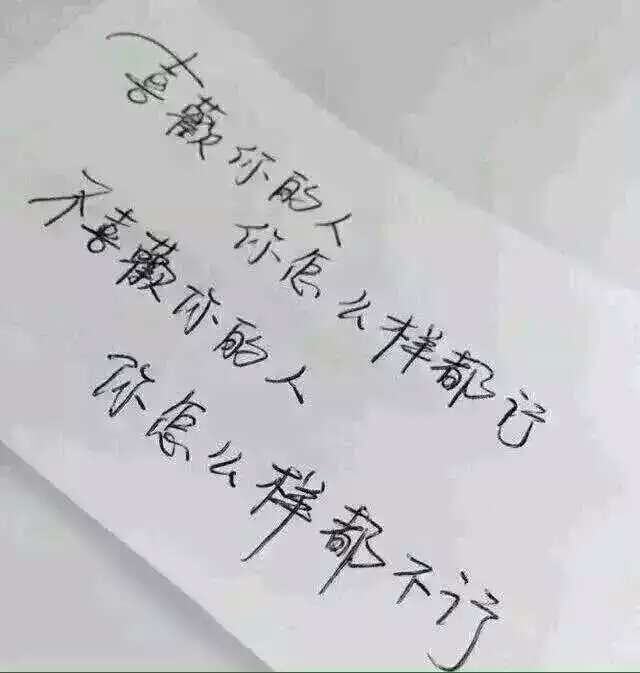 喜歡你的人
你怎么样都行
不喜歡你的人
你怎么样都不行